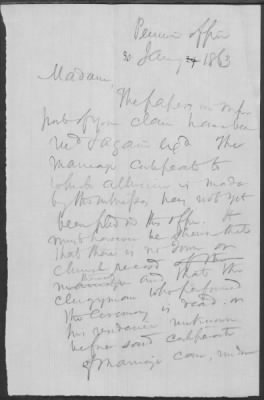 Pension Office
30 Jany 1863
Madam,
The papers in sup
port of your claim have been
rec'd & again exd. The
marriage certificate to
which allusion is made
by the witnesses has not yet
been filed in this office. It
must however be shown that
that there is no Town or
church record of the
marriage and that the
clergyman who performed
the ceremony is dead, or
his residence unknown
before said certificate
of marriage can, under